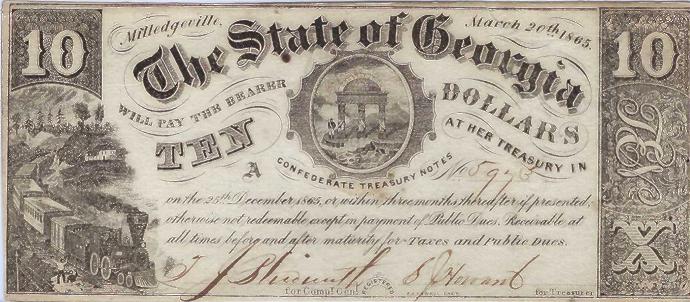 10
Milledgeville, March 20th 1865.
10
The State of Georgia
WILL PAY THE BEARER
TEN DOLLARS
AT HER TREASURY IN
A
CONFEDERATE TREASURY NOTES
No
on the 25th December 1865, or within three months thereafter if presented,
otherwise not redeemable except in payment of Public Dues. Receivable at
all times before and after maturity for Taxes and Public Dues.
for Compt. Genl.
REGISTERED
for Treasurer
X